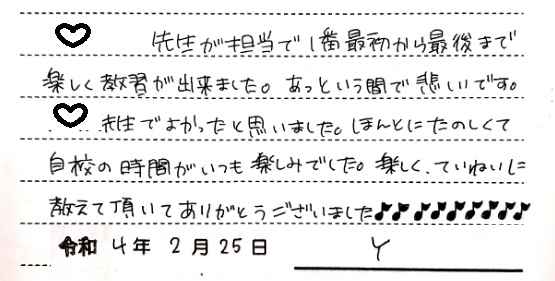 ♡ 先生が担当で1番最初から最後まで
楽しく教習が出来ました。あっという間で悲しいです。
♡ 先生でよかったと思いました。ほんとにたのしくて
自校の時間がいつも楽しみでした。楽しく、ていねいに
教えて頂いてありがとうございました♪♪♪♪♪♪♪♪♪♪
令和 4年 2月 25日 Y